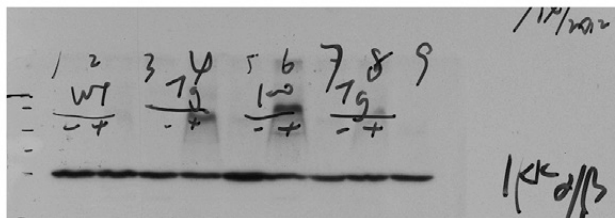 2012
1 2 3 4 5 6 7 8 9
WT Tg 100 Tg
- + - + - + - +
IKK α/β